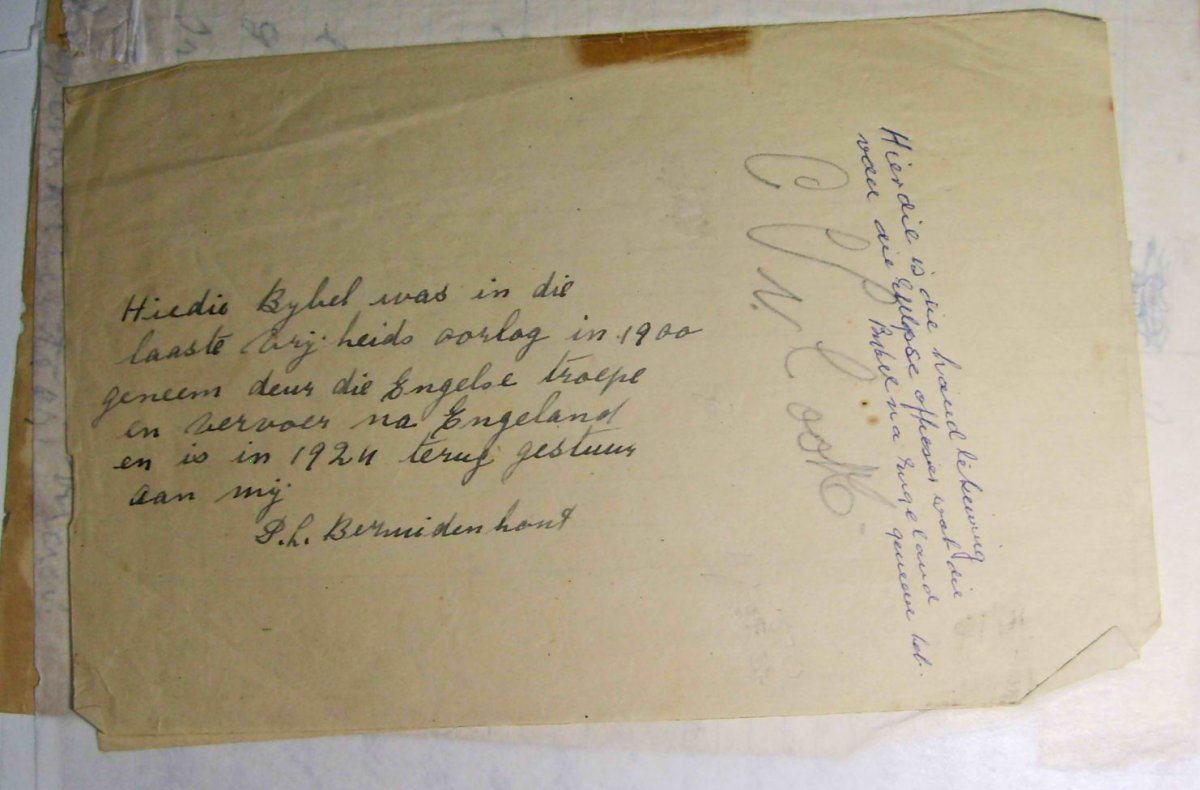 Hiedie Bybel was in die
laaste vrij heids oorlog in 1900
geneem deur die Engelse troepe
en vervoer na Engeland
en is in 1924 terug gestuur
aan mij
P.L. Bernidenhout
Hierdie is die hand tekening
van die Engelse offisier wat die
Bybel na Engeland geneem het.